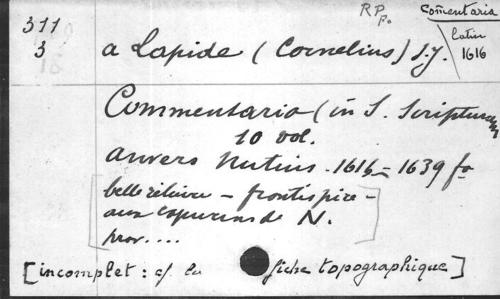 RP
P.
Comentaria
latin
1616
311
3
a Lapide (Cornelius) s.j.
Commentaria (in S. Scripturam
10 vol.
anvers Nutius. 1616 = 1639 fo
belle reliure - frontispice -
aux capucins de N.
prov....
[incomplet : cf la fiche topographique]